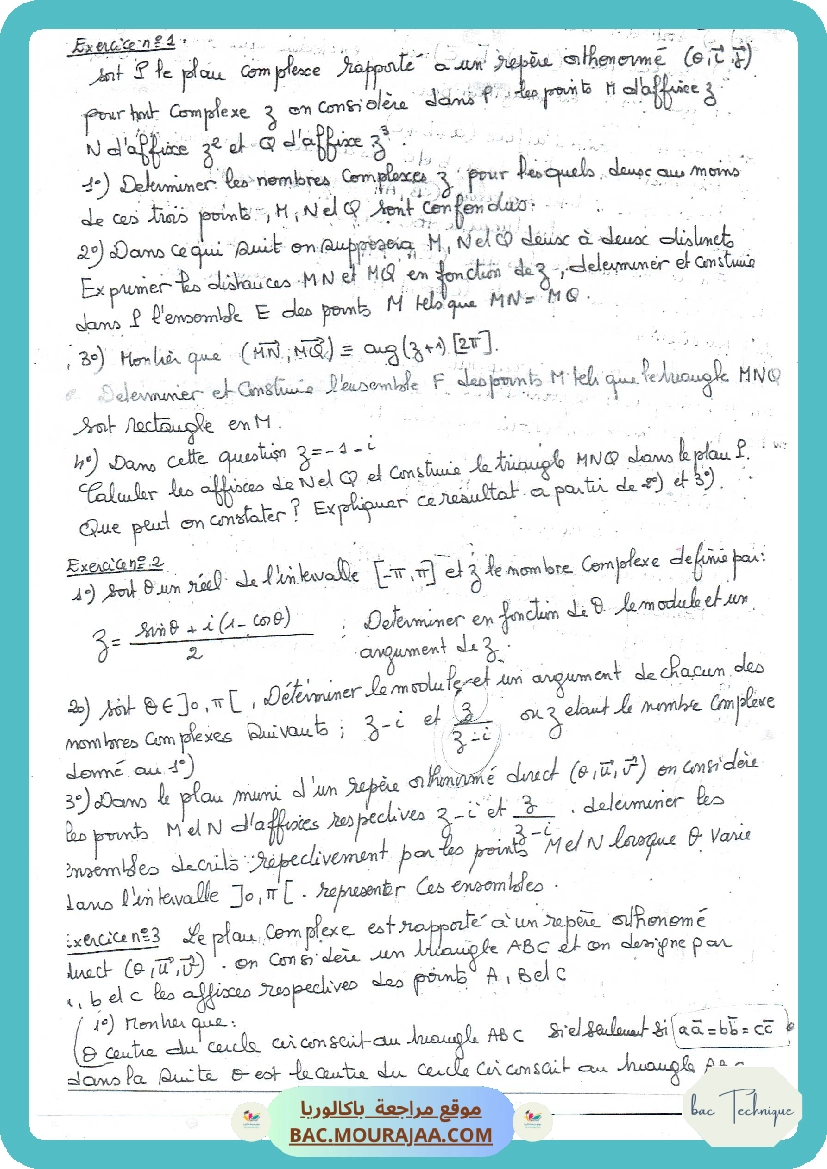 Exercice n°1.
Soit P le plan complexe rapporté a un repère orthonormé (O, i, j)
pour tout complexe z on considère dans P. les points M d'affixe z
N d'affixe z² et Q d'affixe z³.
1°) Determiner les nombres complexes z pour lesquels deux au moins
de ces trois points, M, N et Q sont confondus.
2°) Dans ce qui suit on supposera M, N et Q deux à deux distincts
Exprimer les distances MN et MQ en fonction de z, determiner et construire
dans P l'ensemble E des points M tels que MN = MQ.
3°) Montrer que (MN, MQ) ≡ arg(z+1) [2π].
Determiner et Construire l'ensemble F des points M tels que le triangle MNQ
soit rectangle en M.
4°) Dans cette question z = -1 - i
Calculer les affixes de N et Q et construire le triangle MNQ dans le plan P.
Que peut on constater? Expliquer ce resultat a partir de 2°) et 3°).
Exercice n°2
1°) Soit θ un réel de l'intervalle [-π, π] et z le nombre complexe definie par:
z = (sinθ + i(1 - cosθ))/2 ; Determiner en fonction de θ le module et un
argument de z.
2°) soit θ ∈ ]0, π[, Déterminer le module et un argument de chacun des
nombres complexes suivants ; z-i et z/(z-i) ou z etant le nombre complexe
donné au 1°)
3°) Dans le plan muni d'un repère orthonormé direct (O, u, v) on considère
les points M et N d'affixes respectives z-i et z/(z-i). determiner les
ensembles decrits respectivement par les points M et N lorsque θ varie
dans l'intervalle ]0, π[. representer ces ensembles.
Exercice n°3 Le plan complexe est rapporté à un repère orthonomé
direct (O, u, v). on considère un triangle ABC et on designe par
a, b et c les affixes respectives des points A, B et C
1°) Montrer que:
O centre du cercle circonscrit au triangle ABC si et seulement si aā = bb̄ = cc̄
dans la suite O est le centre du cercle circonscrit au triangle ABC
موقع مراجعة باكالوريا
BAC.MOURAJAA.COM
bac Technique